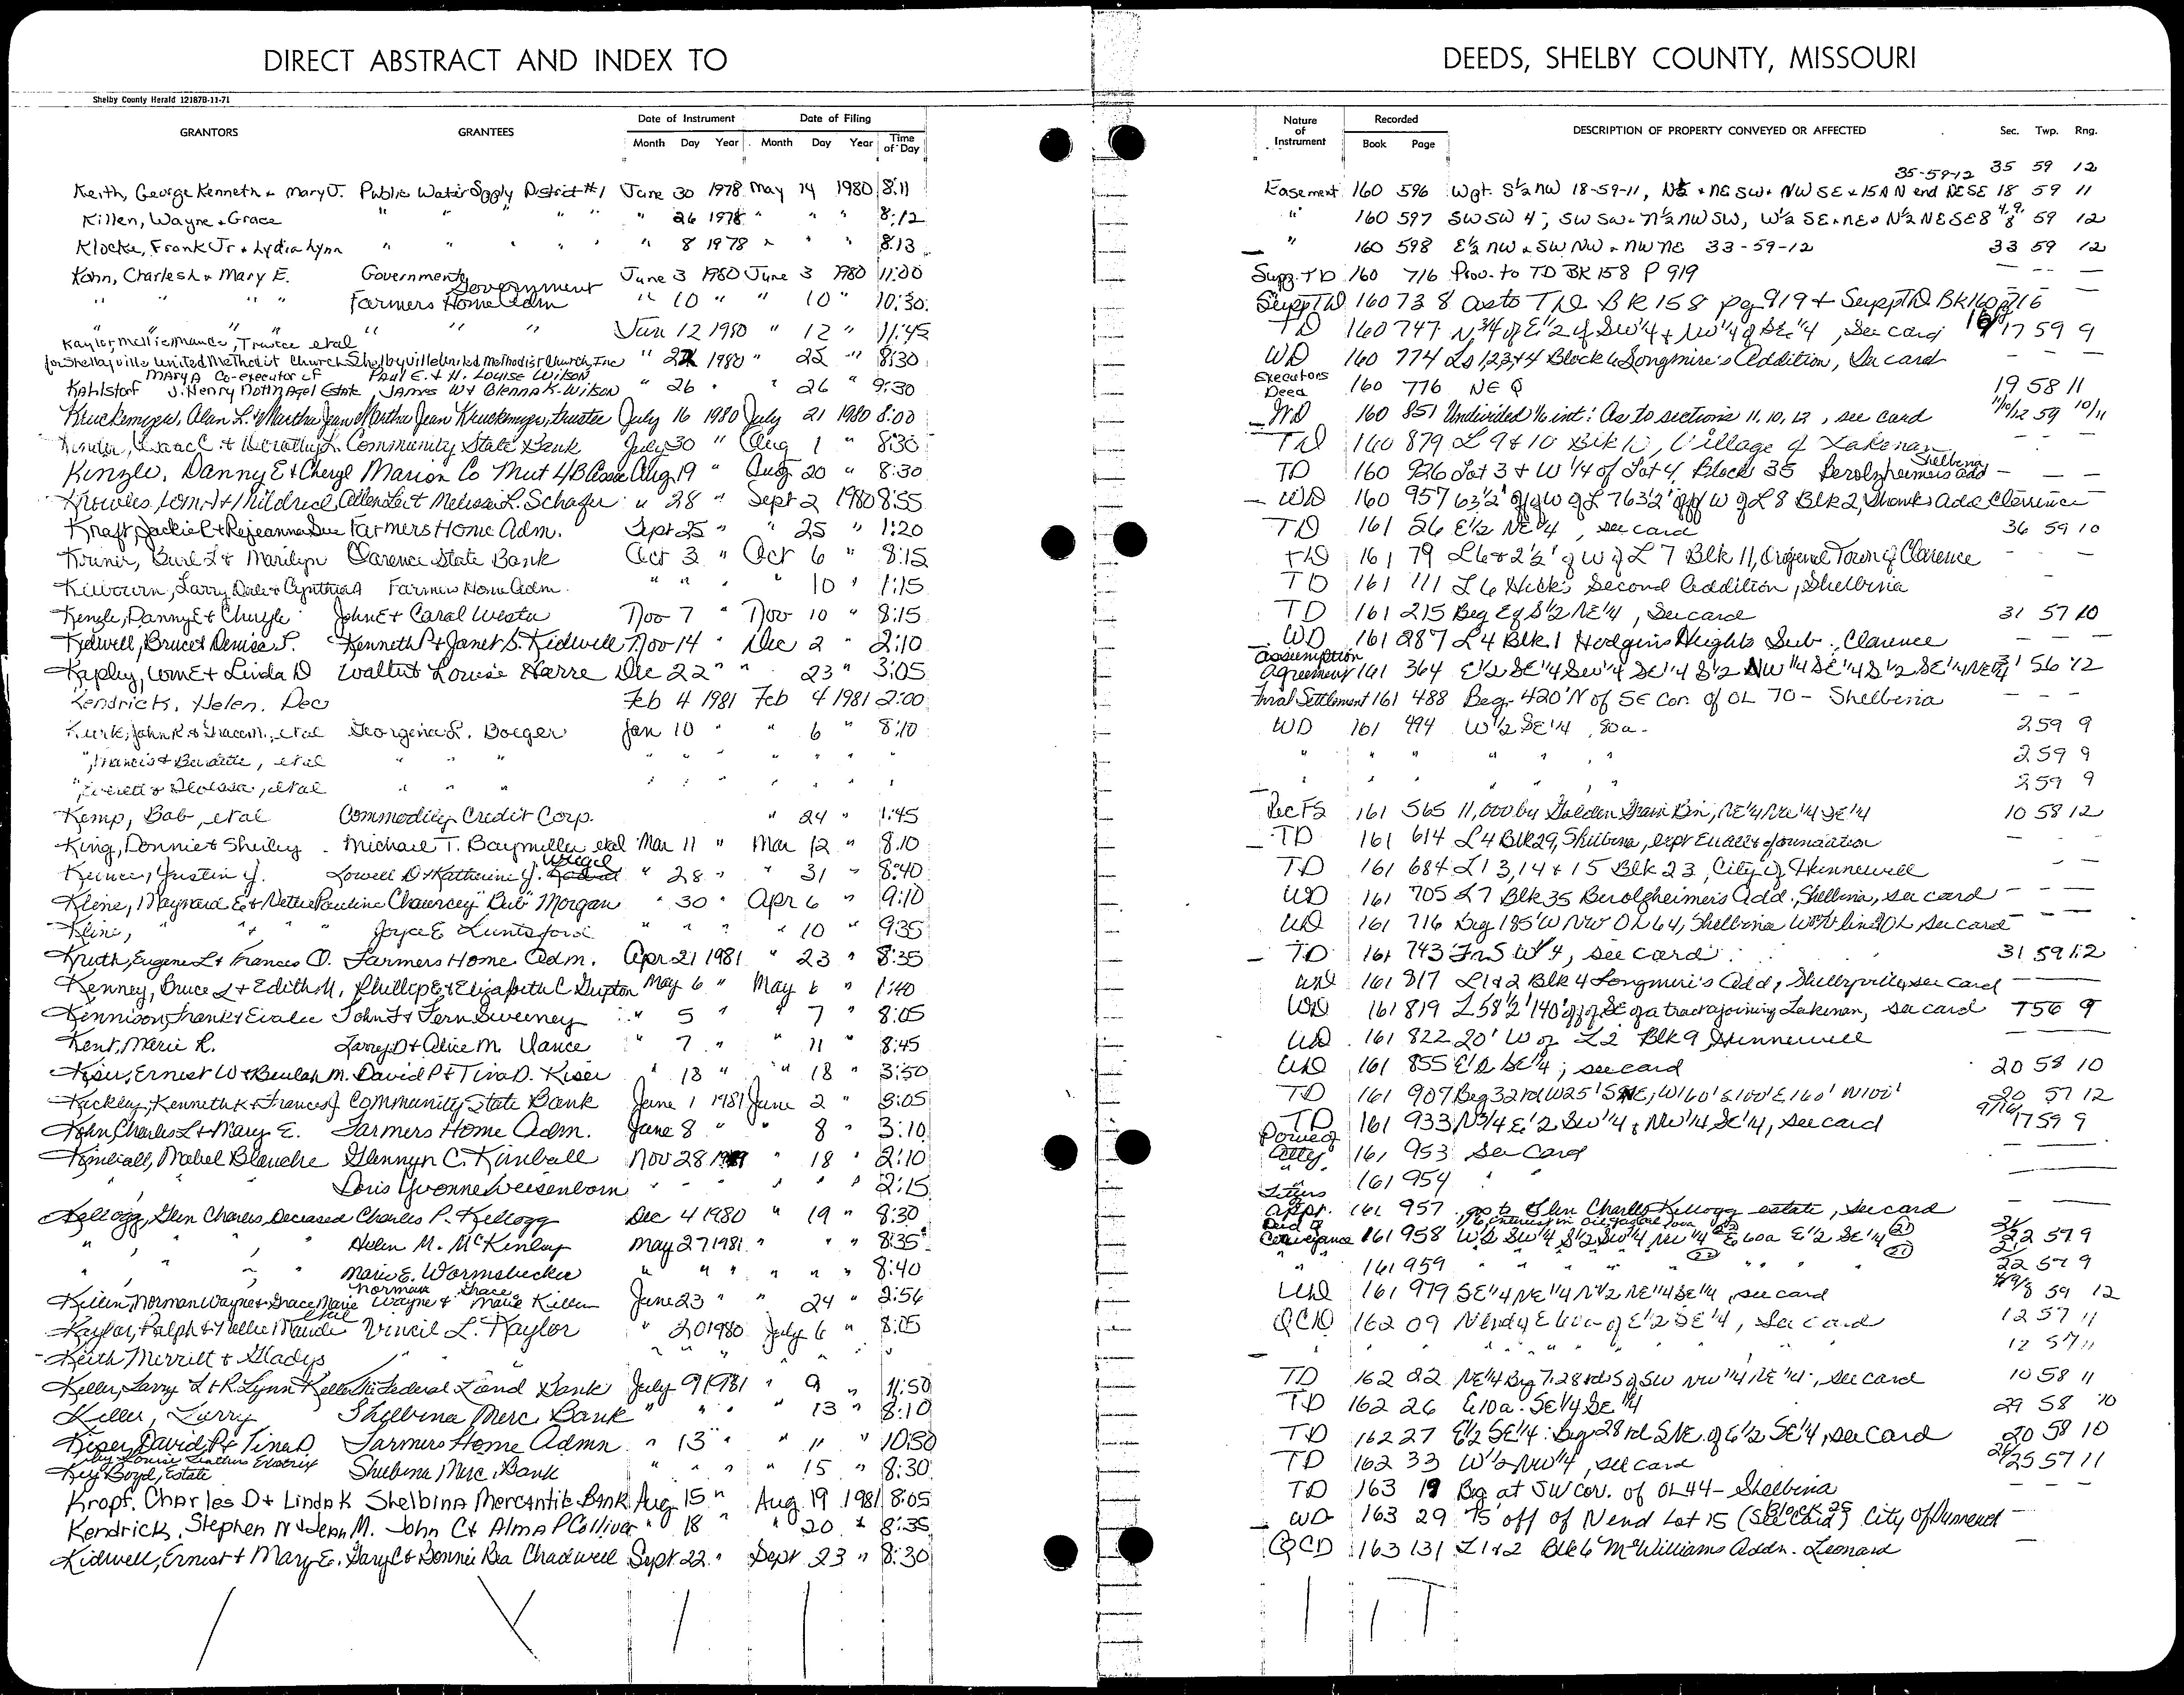 DIRECT ABSTRACT AND INDEX TO
DEEDS, SHELBY COUNTY, MISSOURI
Shelby County Herald 12187B-11-71
GRANTORS GRANTEES Date of Instrument Date of Filing
Month Day Year Month Day Year Time of Day
Nature of Instrument Recorded Book Page DESCRIPTION OF PROPERTY CONVEYED OR AFFECTED Sec. Twp. Rng.
35-59-12 35 59 12
Keith, George Kenneth & Mary J. Public Water Supply District #1 June 30 1978 May 14 1980 8:11 Easement 160 596 Wpt. S½ NW 18-59-11, & NE SW & NW SE & 15A N end 18 59 11
Killen, Wayne & Grace " " " " " 26 1978 " " " 8:12 " 160 597 SW SW 4; SW SW & N½ NW SW, W½ SE & NE & N½ NE SE 8 4,9,8 59 12
Klocke, Frank Jr & Lydia Lynn " " " " " 8 1978 " " " 8:13 " 160 598 E½ NW & SW NW & NW NE 33-59-12 33 59 12
Kohn, Charles L & Mary E. Government June 3 1980 June 3 1980 11:00 Supp. TD 160 716 Prov. to TD BK 158 P 919 — — —
" " " " Government Farmers Home Adm " 10 " " 10 " 10:30 Supp TD 160 738 As to TD BK 158 pg 919 & Supp TD Bk 160 p 716
" " " " " " Jun 12 1980 " 12 " 11:45 TD 160 747 N ¾ of E½ of SW¼ & NW¼ of SE¼, See card 16/17 59 9
Kaylor, Nellie Maude, Trustee etal
for Shelbyville United Methodist Church Shelbyville United Methodist Church, Inc " 22 1980 " 25 " 8:30 WD 160 774 Ls 1,2,3+4 Block 6 Longmire's Addition, See card — — —
Mary A Co-executor of Paul E. & H. Louise Wilson
Kahlstorf J. Henry Nottnagel Estate, James W & Glenna K. Wilson " 26 " " 26 " 9:30 Executors Deed 160 776 NE Q 19 58 11
Kruckemyer, Alan L. & Martha Jean Martha Jean Kruckemyer, trustee July 16 1980 July 21 1980 8:00 WD 160 851 Undivided ½ int: As to sections 11, 10, 12, see card 11/10/12 59 10/11
Isaac & Dorothy L. Community State Bank July 30 " Aug 1 " 8:30 TD 160 879 L 9 & 10 Blk 10, Village of Lakenan — — —
Kenzle, Danny E & Cheryl Marion Co Mut Assoc Aug 19 " Aug 20 " 8:30 TD 160 926 Lot 3 & W ¼ of Lot 4, Block 35 Berolzheimers add Shelbina — — —
Knowles, Wm. H & Mildred Allen Le & Melissa L. Schafer " 28 " Sept 2 1980 8:55 WD 160 957 63½' off W of L 7 63½' off W of L 8 Blk 2, Shanks Add Clarence
Kraft, Jackie E & Rejeanna Sue Farmers Home Adm. Sept 25 " " 25 " 1:20 TD 161 56 E½ NE¼, see card 36 59 10
Kriner, Burl L & Marilyn Clarence State Bank Oct 3 " Oct 6 " 8:15 TD 161 79 L 6 & 2½' of W of L 7 Blk 11, Original Town of Clarence — — —
Kilbourn, Larry Dale & Cynthia A Farmers Home Adm. " " " " 10 " 1:15 TD 161 111 L 6 Second Addition, Shelbina — — —
Kenzle, Danny E & Cheryle John E & Carol Westa Nov 7 " Nov 10 " 8:15 TD 161 215 Beg Eq S½ NE¼, See card 31 57 10
Kidwell, Bruce & Denise S. Kenneth P & Janet S. Kidwell Nov 14 " Dec 2 " 2:10 WD 161 287 L 4 Blk 1 Hodgins Heights Sub., Clarence — — —
Kapley, Wm E & Linda D Walter & Louise Harre Dec 22 " " 23 " 3:05 Assumption Agreement 161 364 E½ SE¼ SW¼ SE¼ S½ NW¼ SE¼ S½ SE¼ NE¼ 31 56 12
Kendrick, Helen, Dec Feb 4 1981 Feb 4 1981 2:00 Final Settlement 161 488 Beg. 420' N of SE Cor. of OL 70 - Shelbina — — —
Kurk, John R & Grace M., etal Georgena L. Boeger Jan 10 " " 6 " 8:10 WD 161 494 W½ SE¼, 80a. 2 59 9
", Francis & Burdette, etal " " " " " " " " " " " " " 2 59 9
", Everett & , etal " " " " " " " " " " " " " 2 59 9
Kemp, Bob, etal Commodity Credit Corp. " 24 " 1:45 Rec FS 161 565 11,000 bu Golden Grain Bin, NE¼ NW¼ SE¼ 10 58 12
King, Donnie & Shirley Michael T. Baymiller etal Mar 11 " Mar 12 " 8:10 TD 161 614 L 4 Blk 29, Shelbina, — — —
Justin J. Lowell D & Katherine J. Weigel " 28 " " 31 " 8:40 TD 161 684 L 13, 14 & 15 Blk 23, City of Hunnewell — — —
Kline, Maynard E & Nettie Pauline Chauncey "Bub" Morgan " 30 " Apr 6 " 9:10 WD 161 705 L 7 Blk 35 Berolzheimer's Add., Shelbina, see card — — —
Kline, " " " Joyce E Luntsford " " " " 10 " 9:35 WD 161 716 Beg 185' W NW OL 64, Shelbina W line OL, see card — — —
Kruth, Eugene L & Frances O. Farmers Home Adm. Apr 21 1981 " 23 " 8:35 TD 161 743 SW¼, see card 31 59 12
Kenney, Bruce L & Edith M. Phillip E & Elizabeth C Gupton May 6 " May 6 " 1:40 WD 161 817 L 1 & 2 Blk 4 Longmire's Add, Shelbyville, see card
Kennison, Frank & Evalee John F & Fern Sweeney " 5 " " 7 " 8:05 WD 161 819 L 58½' 140' off of SE of a tract ajoining Lakenan, see card 7 56 9
Kent, Marie R. Larry D & Alice M. Vance " 7 " " 11 " 8:45 WD 161 822 20' W of L 2 Blk 9, Hunnewell
Kiser, Ernest W & Beulah M. David P & Tina D. Kiser " 13 " " 18 " 3:50 WD 161 855 E½ SE¼; see card 20 58 10
Kackley, Kenneth K & Frances J Community State Bank June 1 1981 June 2 " 3:05 TD 161 907 Beg 32 rd W 25' S NE, W 160' S 100' E 160' N 100' 20 57 12
Kohn, Charles L & Mary E. Farmers Home Adm. June 8 " " 8 " 3:10 TD 161 933 N ¾ E½ SW¼ & NW¼ SE¼, see card 9/16/17 59 9
Kimball, Mabel Blanche Glennyn C. Kimball Nov 28 " 18 " 2:10 Power of Atty. 161 953 See Card
" " Doris Yvonne Weisenborn " " " " " 2:15 " 161 954 " "
Kellogg, Glen Charles, Deceased Charles P. Kellogg Dec 4 1980 " 19 " 8:30 Letters appt. 161 957 as to Glen Charles Kellogg estate, see card
" " " " Helen M. McKinlay May 27 1981 " " " 8:35 Deed of Conveyance 161 958 W½ SW¼ S½ SW¼ NW¼ E 60a E½ SE¼ 21/22 57 9
" " " " Marie E. Wormsbecker " " " " " " 8:40 " 161 959 " " " " 21/22 57 9
Killen, Norman Wayne & Grace Marie Norman Wayne & Grace Marie Killen June 23 " " 24 " 2:56 WD 161 979 SE¼ NE¼ N½ NE¼ SE¼, see card 4/9/8 59 12
Kaylor, Ralph & Nellie Maude etal Vincil L. Kaylor " 20 1980 July 6 " 8:05 QCD 162 09 N end of E 60a of E½ SE¼, See card 12 57 11
Keith Merrill & Gladys " " " " " " " " " " " " " 12 57 11
Keller, Larry L & R. Lynn Keller Federal Land Bank July 9 1981 " 9 " 11:50 TD 162 22 NE¼ Beg 7.28 rds S of SW NW¼ NE¼, see card 10 58 11
Keller, Larry Shelbina Merc Bank " " " " 13 " 8:10 TD 162 26 E 10a. SE¼ SE¼ 29 58 10
Kiser, David P & Tina D Farmers Home Admn " 13 " " " " 10:30 TD 162 27 E½ SE¼: Beg 28 rd S NE of E½ SE¼, see card 20 58 10
by Louise Executrix
Key Boyd, Estate Shelbina Merc. Bank " " " " 15 " 8:30 TD 162 33 W½ NW¼, see card 24/25 57 11
Kropf, Charles D & Linda K Shelbina Mercantile Bank Aug 15 " Aug 19 1981 8:05 TD 163 19 Beg at SW cor. of OL 44 - Shelbina — —
Kendrick, Stephen N & Jean M. John C & Alma P Colliver " 18 " " 20 " 8:35 WD 163 29 75' off of N end Lot 15 (See Card) Block 25 City of —
Kidwell, Ernest & Mary E. Gary C & Bonnie Bea Chadwell Sept 22 " Sept 23 " 8:30 QCD 163 131 L 1 & 2 Blk 6 McWilliams Addn. Leonard —